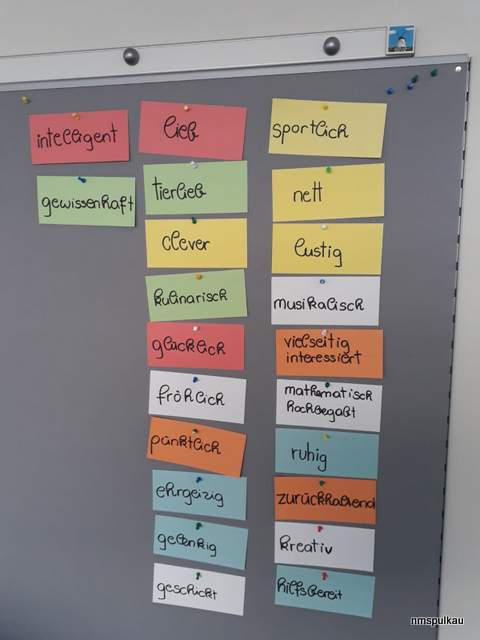 intelligent
gewissenhaft
lieb
tierlieb
clever
kulinarisch
glücklich
fröhlich
pünktlich
ehrgeizig
gelenkig
geschickt
sportlich
nett
lustig
musikalisch
vielseitig
interessiert
mathematisch
hochbegabt
ruhig
zurückhaltend
kreativ
hilfsbereit
nmspulkau